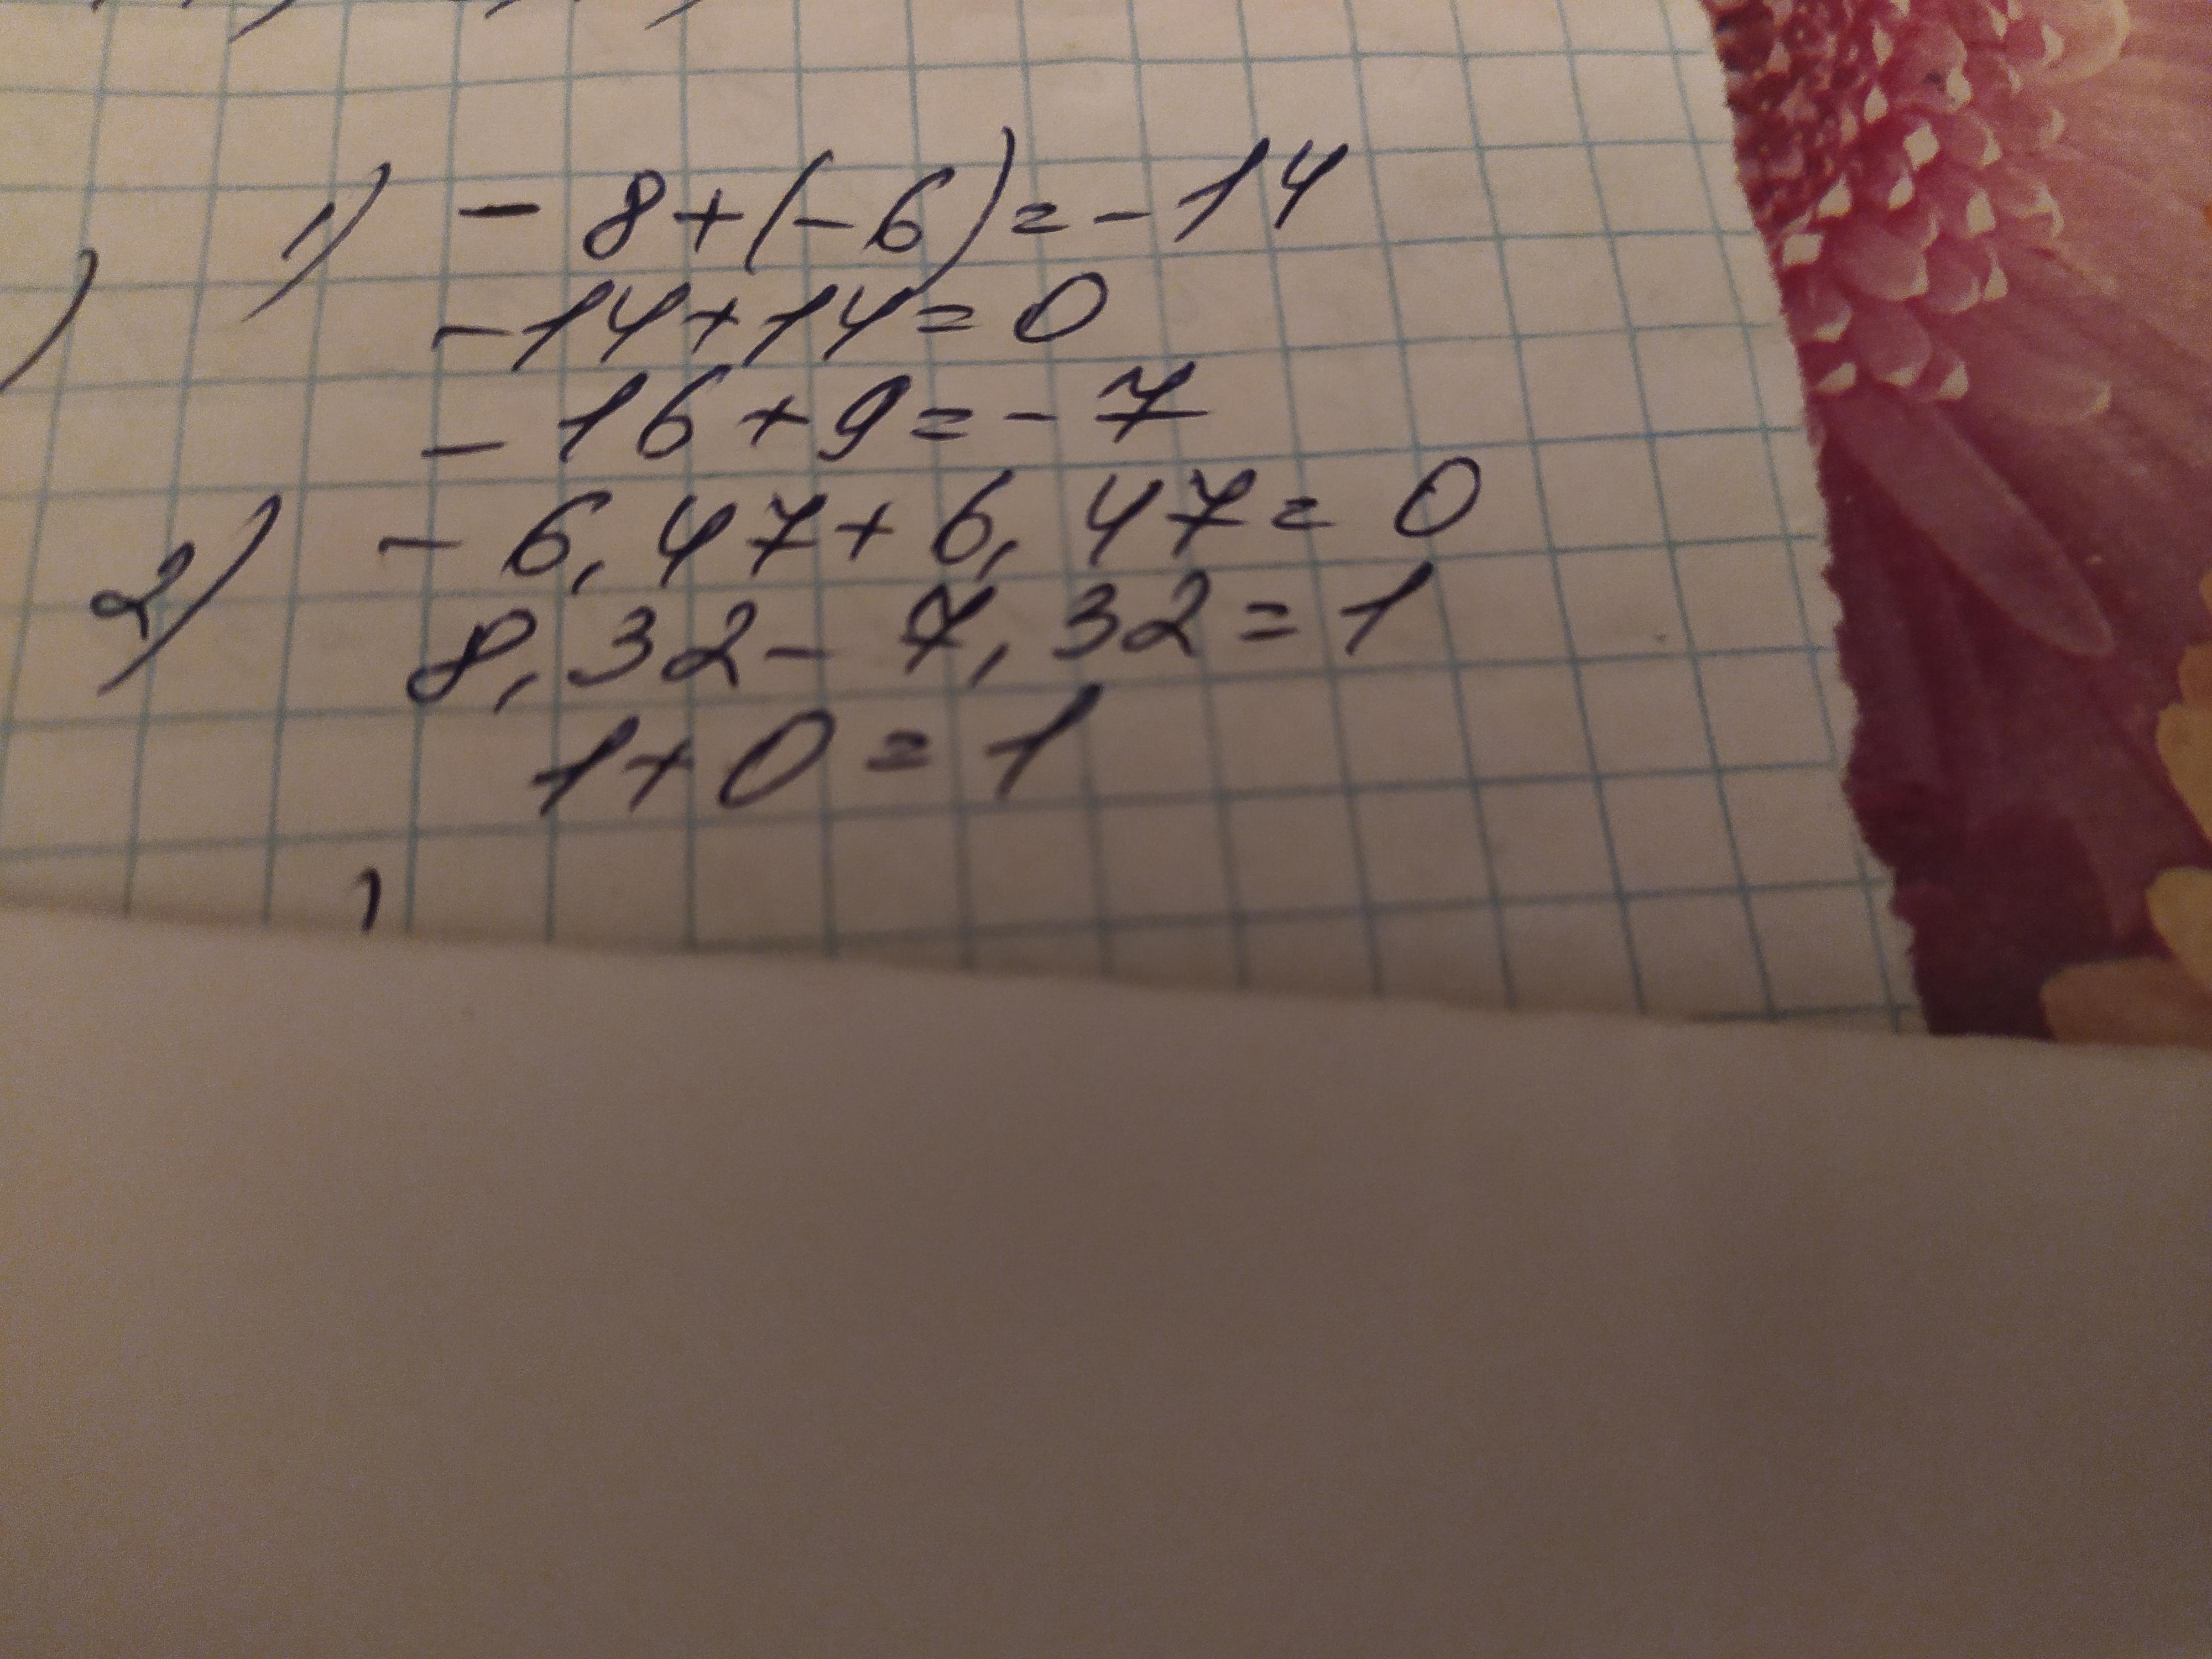 1) - 8 + (- 6) = - 14
- 14 + 14 = 0
- 16 + 9 = - 7
2) - 6,47 + 6,47 = 0
8,32 - 7,32 = 1
1 + 0 = 1